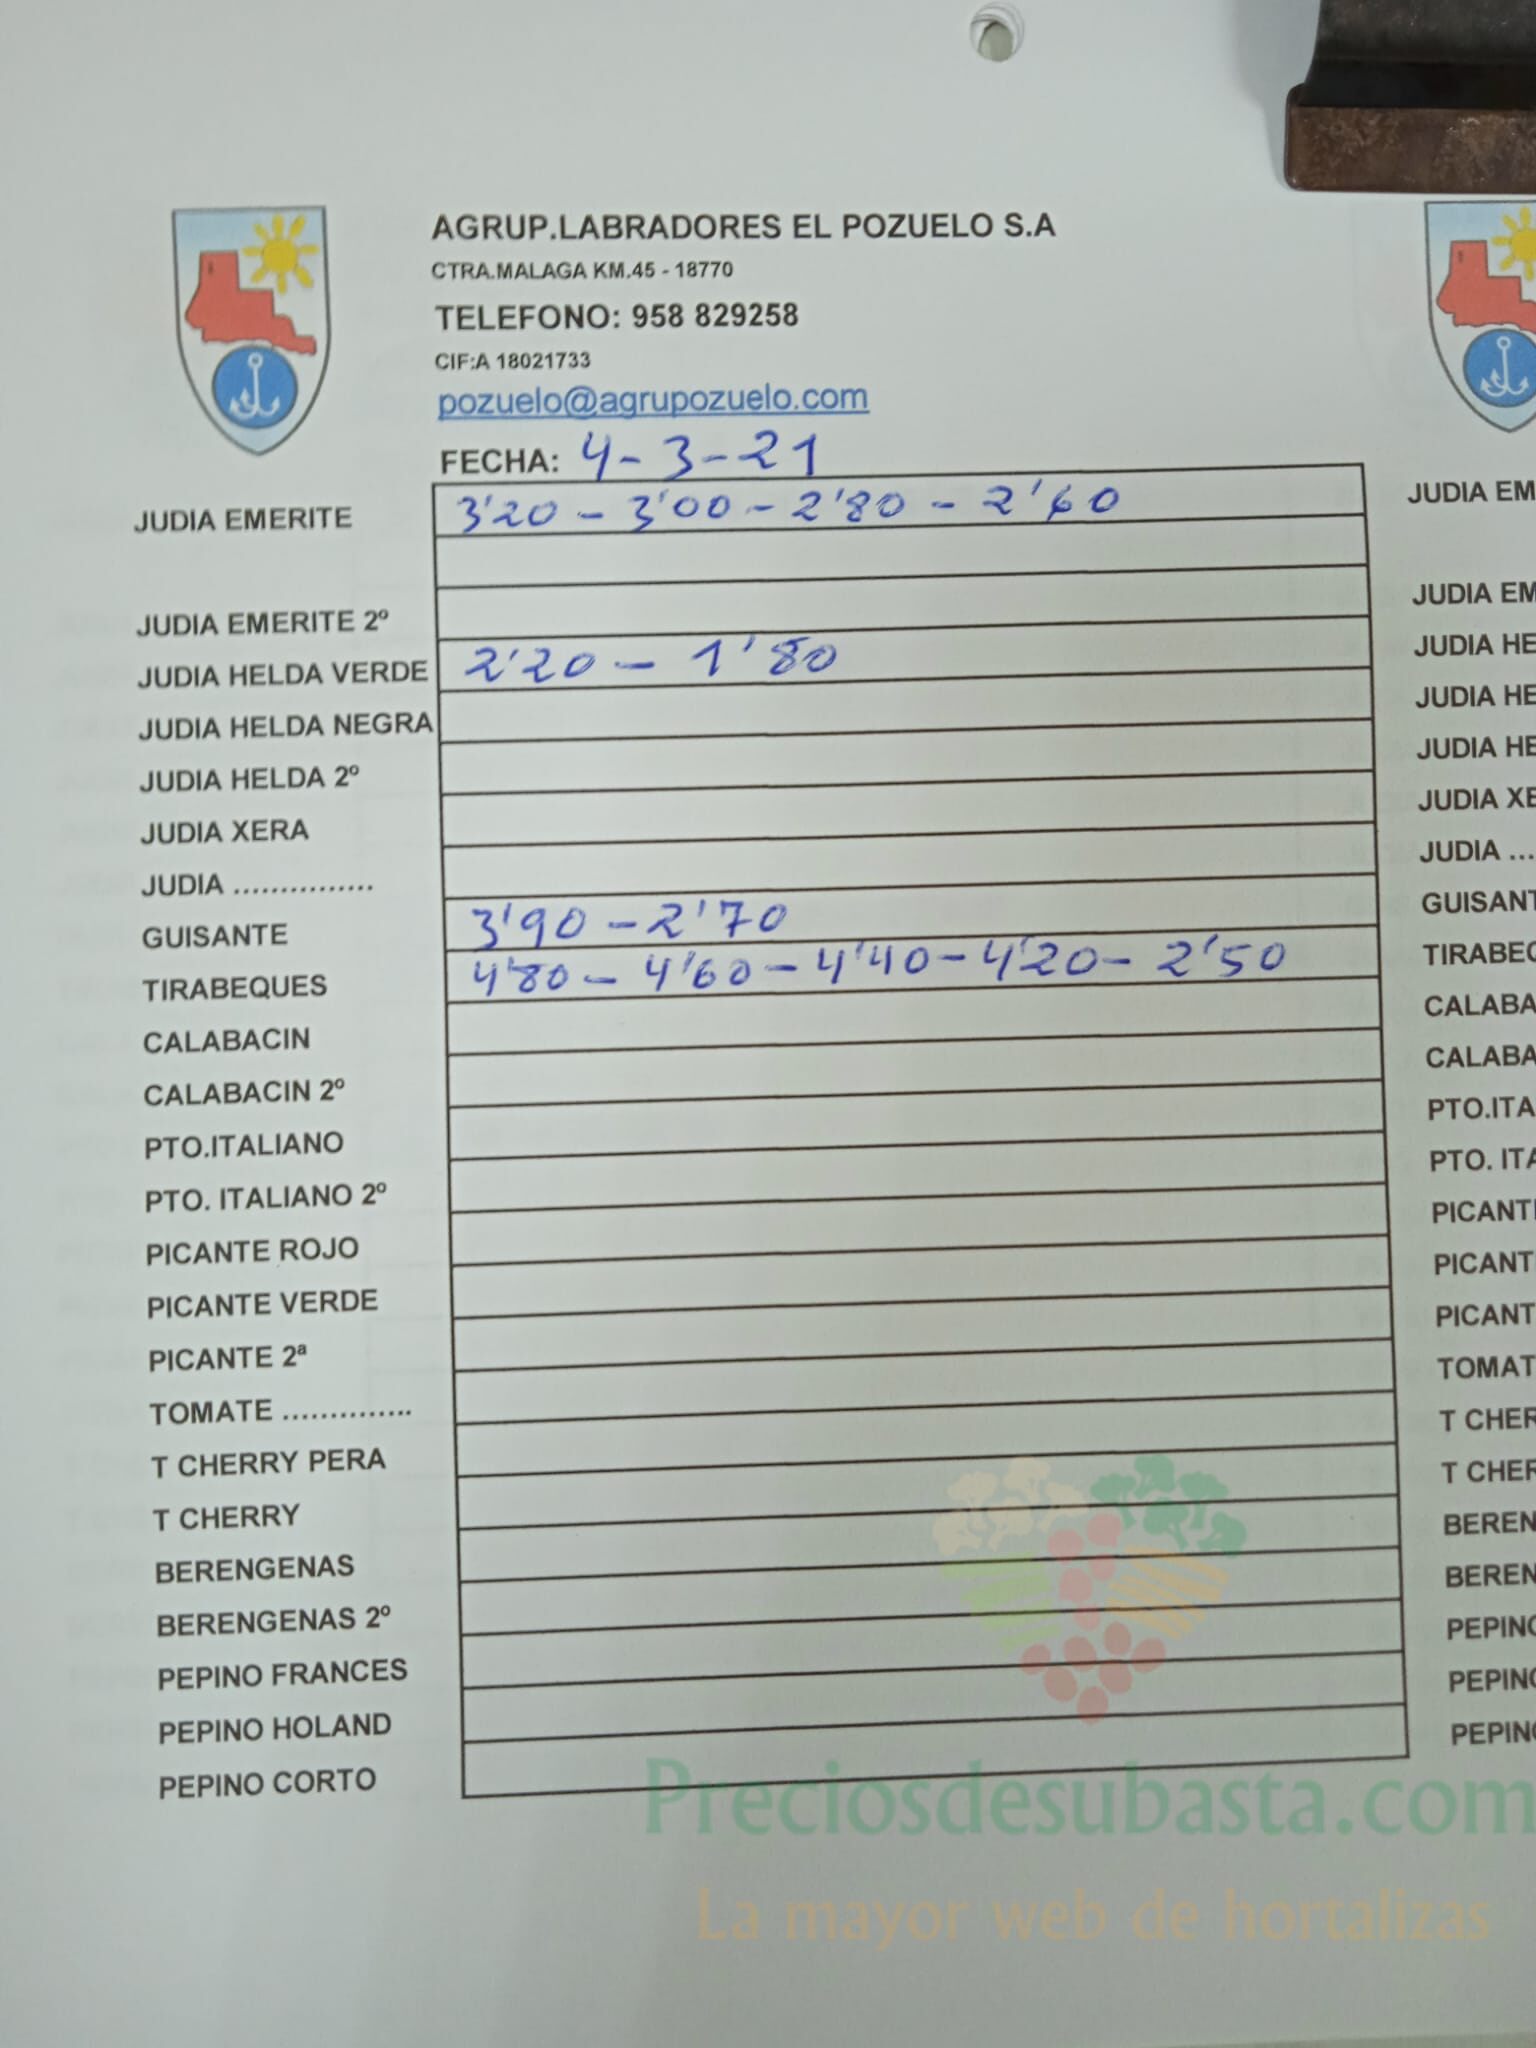 AGRUP.LABRADORES EL POZUELO S.A
CTRA.MALAGA KM.45 - 18770
TELEFONO: 958 829258
CIF:A 18021733
pozuelo@agrupozuelo.com
FECHA: 4-3-21
JUDIA EMERITE 3'20 - 3'00 - 2'80 - 2'60
JUDIA EMERITE 2º
JUDIA HELDA VERDE 2'20 - 1'80
JUDIA HELDA NEGRA
JUDIA HELDA 2º
JUDIA XERA
JUDIA ...............
GUISANTE 3'90 - 2'70
TIRABEQUES 4'80 - 4'60 - 4'40 - 4'20 - 2'50
CALABACIN
CALABACIN 2º
PTO.ITALIANO
PTO. ITALIANO 2º
PICANTE ROJO
PICANTE VERDE
PICANTE 2ª
TOMATE ..............
T CHERRY PERA
T CHERRY
BERENGENAS
BERENGENAS 2º
PEPINO FRANCES
PEPINO HOLAND
PEPINO CORTO
JUDIA EM
JUDIA EM
JUDIA HE
JUDIA HE
JUDIA HE
JUDIA XE
JUDIA ...
GUISANT
TIRABEQ
CALABA
CALABA
PTO.ITA
PTO. ITA
PICANT
PICANT
PICANT
TOMAT
T CHER
T CHER
BEREN
BEREN
PEPINO
PEPINO
PEPINO
Preciosdesubasta.com
La mayor web de hortalizas